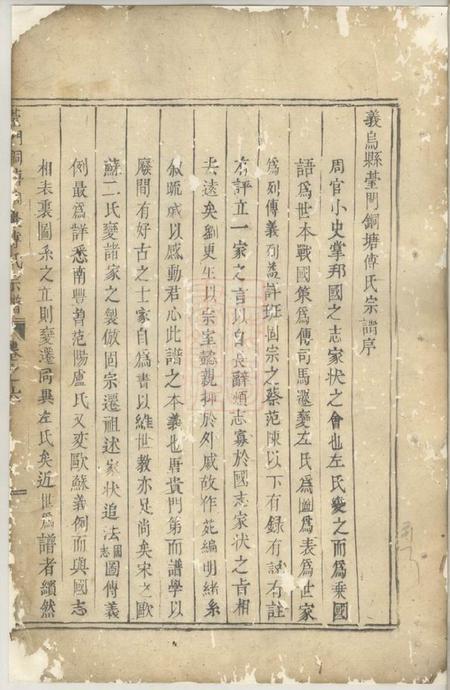 義烏縣墓門銅塘傅氏宗譜序
周官小史掌邦國之志家狀之會也左氏變之而為乗國
語為世本戰國策為傳司馬遷變左氏為圖為表為世家
為列傳義列益詳班固宗之蔡范陳以下有録有誌有註
有評立一家之言以自長辭煩志寡於國志家狀之旨相
去遠矣劉更生以宗室懿親抑於外戚故作苑編明緒系
叙疏戚以感動君心此譜之本義也唐貴門第而譜學以
廢間有好古之士家自為書以維世教亦足尚矣宋之歐
蘇二氏變諸家之製倣固宗遷祖述家狀追法國志圖傳義
例最為詳悉南豐曽范陽盧氏又変歐蘇義例而與國志
相表裏圖系之立則変遷同異左氏矣近世為譜者纘然
門銅塘傅氏宗譜